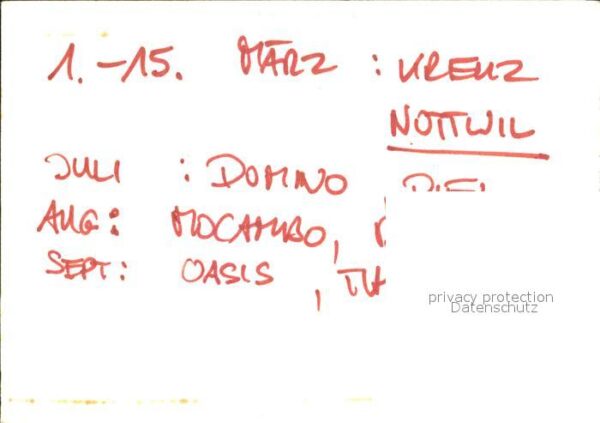 1. - 15. MÄRZ : KREUZ
NOTTWIL
JULI : DOMINO
AUG : MOCAMBO,
SEPT : OASIS ,
privacy protection
Datenschutz